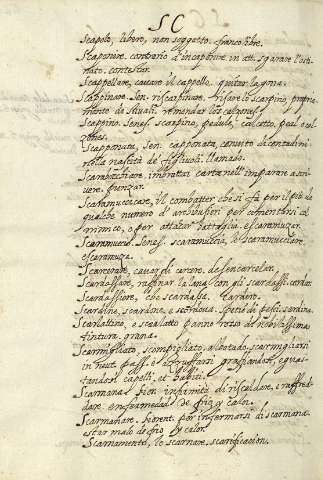 SC
Scapolo, libero, non soggetto. franco libre.
Scaponire. contrario d'incaponire in att. sgarare l'osti-
nato. contestar.
Scappellare, cavare il cappello. quitar la gorra.
Scappinare. Sen. riscappinare, rifare lo scarpino, propria-
mente de stivali. remendar los calzones.
Scappino. Senes. scarpino, pedule, calcetto,
Scapponata, Sen. capponata, convito di contadini
nella nascità de figliuoli. llamado.
Scarabochiare, imbrattar carta nell'imparare a scri-
vere.
Scaramucciare, il combatter che si fà per il più da
qualche numero d'archibusieri per cimentarsi col
nimico, o per attaccar battaglia. escaramuzar.
Scaramuccio. Senes. scaramuccia, lo scaramucciare.
escaramuza.
Scarcerare, cavar di carcere. desencarcelar.
Scardassare, raffinar la lana con gli scardassi. cardar.
Scardassiere, che scardassa.
Scardine, scardone, e scardova. Spetie di pesce. sardina.
Scarlattino, e scarlatto panno rosa di nobilissima
tintura, grana.
Scarmigliato, scompigliato, abbatuto. scarmigliarsi
in neut. pass. è azzuffarsi graffiandosi, e guas-
tandosi capelli, et habiti.
Scarmana. fior. infirmità di riscaldore, e raffred-
dare. enfermedad de frio y calor.
Scarmanare. fiorent. per infermarsi di scarmana.
estar malo de frio, y calor.
Scarnamento, lo scarnare, scarificacion.